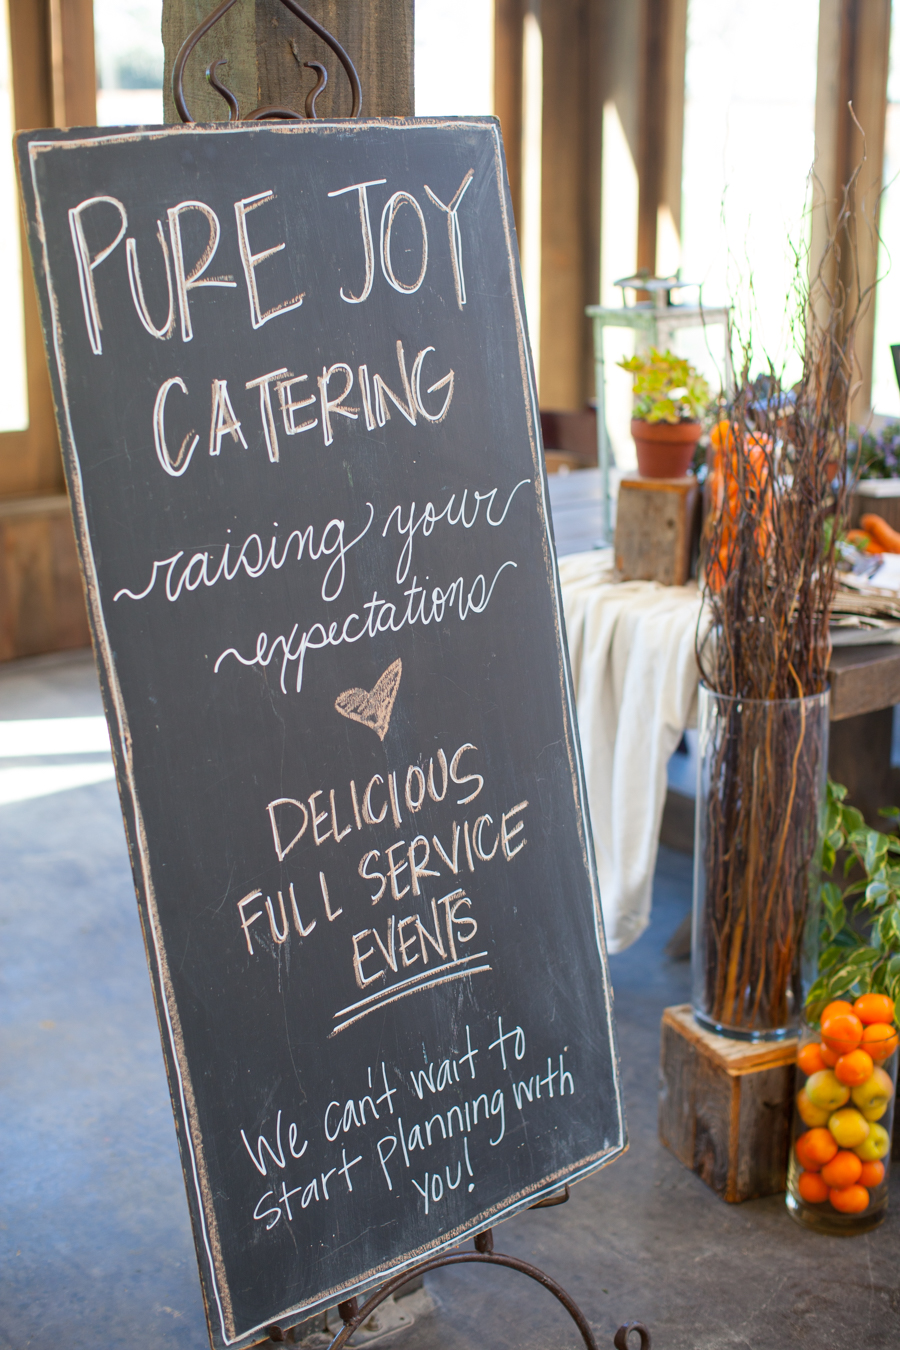 PURE JOY
CATERING
raising your
expectations
DELICIOUS
FULL SERVICE
EVENTS
We can't wait to
start planning with
you!